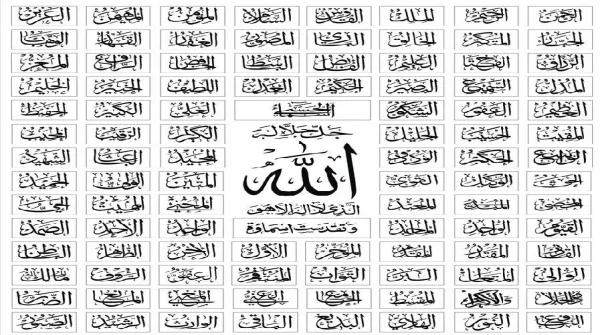 الرحمن الرحيم الملك القدوس السلام المؤمن المهيمن العزيز
الجبار المتكبر الخالق البارئ المصور الغفار القهار الوهاب
الرزاق الفتاح العليم القابض الباسط الخافض الرافع المعز
المذل السميع البصير الحكم العدل اللطيف الخبير الحليم
العظيم الغفور الشكور العلي الكبير الحفيظ
المقيت الحسيب الجليل جل جلاله الكريم الرقيب المجيب
الواسع الحكيم الودود المجيد الباعث الشهيد
الحق الوكيل القوي الله المتين الولي الحميد
المحصي المبدئ المعيد الذي لا إله إلا هو المحيي المميت الحي
القيوم الواجد الماجد وتقدست أسماؤه الواحد الأحد الصمد
القادر المقتدر المقدم المؤخر الأول الآخر الظاهر الباطن
الوالي المتعالي البر التواب المنتقم العفو الرؤوف مالك
ذو الجلال والإكرام المقسط الجامع الغني المغني المانع الضار
النافع النور الهادي البديع الباقي الوارث الرشيد الصبور